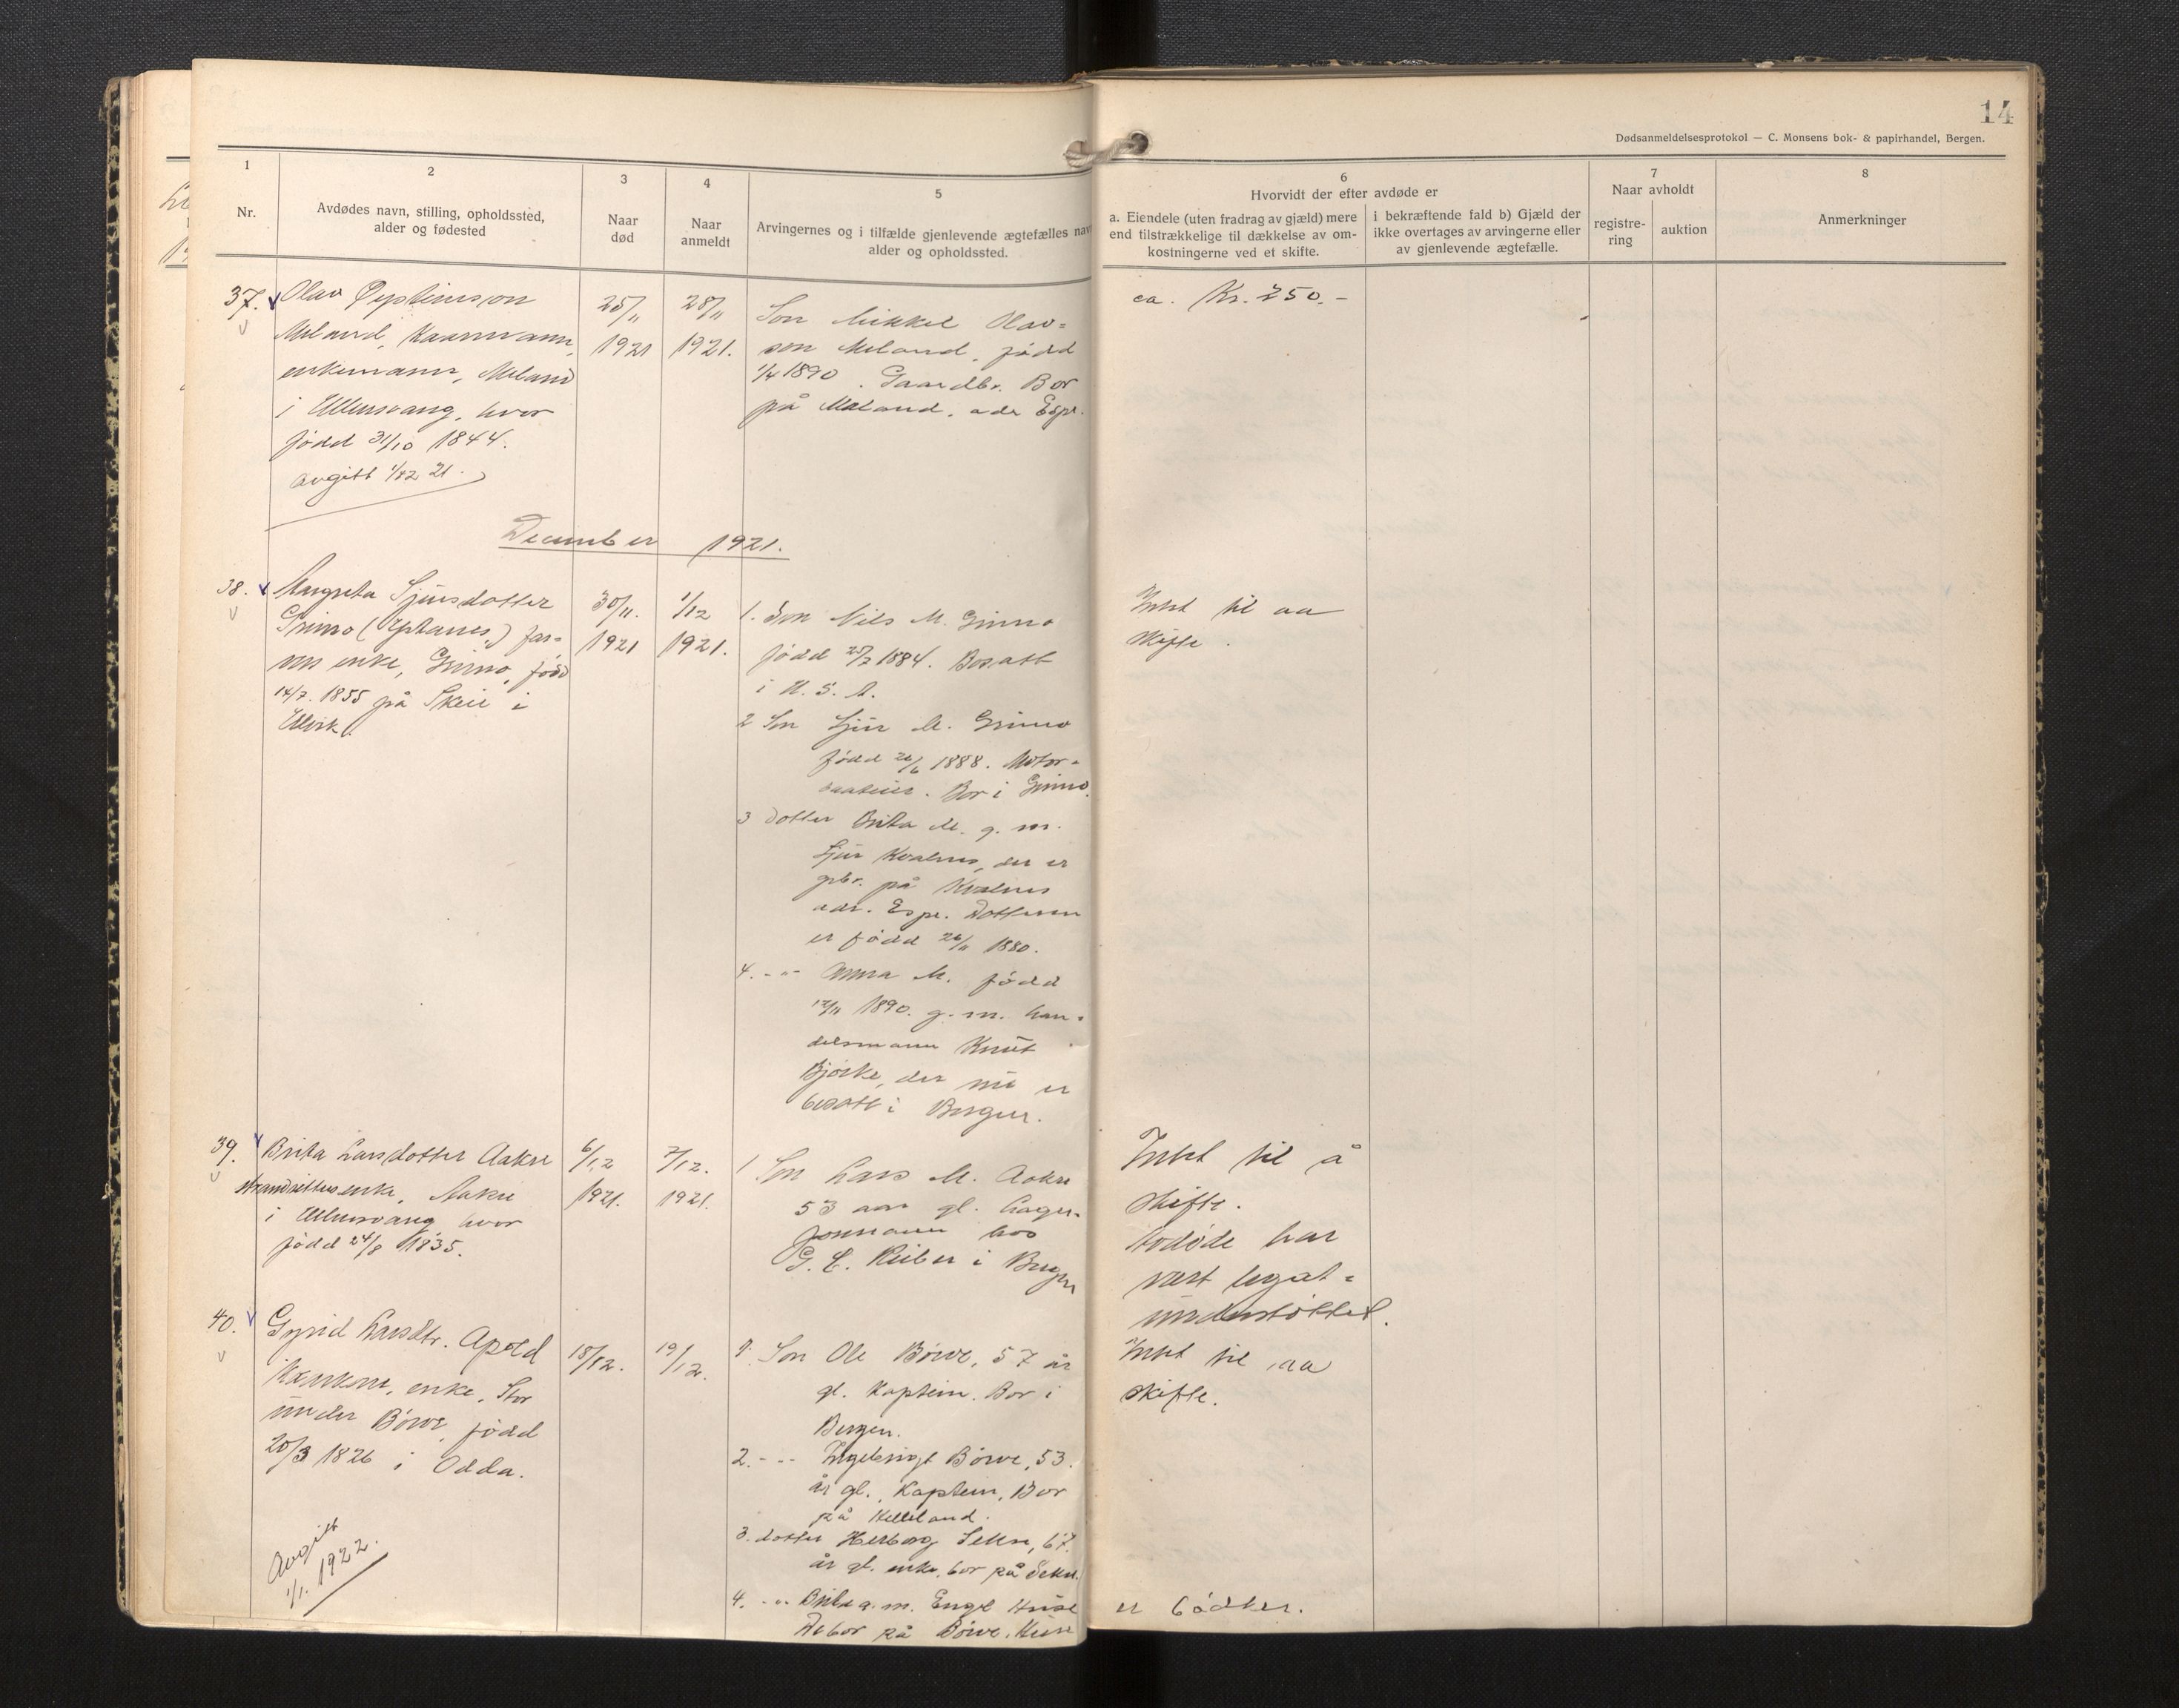 14
Dødsanmeldelsesprotokol — C. Monsens bok- & papirhandel, Bergen.
1
Nr.
2
Avdødes navn, stilling, opholdssted,
alder og fødested
3
Naar
død
4
Naar
anmeldt
5
Arvingernes og i tilfælde gjenlevende ægtefælles navn
alder og opholdssted.
6
Hvorvidt der efter avdøde er
a. Eiendele (uten fradrag av gjæld) mere
end tilstrækkelige til dækkelse av om-
kostningerne ved et skifte.
i bekræftende fald b) Gjæld der
ikke overtages av arvingerne eller
av gjenlevende ægtefælle.
7
Naar avholdt
registre-
ring
auktion
8
Anmerkninger
37.
Olav
Meland, Kaarmann,
enkemann, Meland
i Ullensvang, hvor
född 31/10 1844.
avgitt 1/12 21.
25/11
1921
28/11
1921.
Son Mikkel Olav=
son Meland, född
1/4 1890. Gaardbr. Bor
på Meland, adr Espe.
ca. Kr. 250.-
December 1921.
38.
Margreta Sjursdotter
Grimo
enke, Grimo, född
14/7. 1855 på Skeie i
Ulvik.
30/11.
1921
1/12
1921.
1. Son Nils M. Grimo
född 1884. Bosatt
i U. S. A.
2 Son Sjur M. Grimo
född 26/6 1888. Motor=
Bor i Grimo.
3 Dotter Brita M. g. m.
Sjur Kvalnes, der er
gbr. på Kvalnes
adr. Espe. Dotteren
er född 26/11 1880.
4. -"- Anna M. född
12/11 1890. g. m. han=
delsmann Knut
Bjørke, der nu er
bosatt i Bergen.
Intet til aa
skifte.
39.
Brita Larsdotter Aakre
strandsittarenke, Aakre
i Ullensvang hvor
född 24/8 1835.
6/12
1921.
7/12.
1921.
1 Son Lars M. Aakre
53 aar gl. Lager=
formann hos
G. C. Rieber i Bergen
Intet til å
skifte.
Avdöde har
vært legat=
understöttet.
40.
Gyrid Larsdtr. Apold
enke, Stor
under Börve, född
20/3 1826 i Odda.
Avgitt
1/1. 1922.
18/12.
19/12.
1. Son Ole Börve, 57 år
gl. Kaptein. Bor i
Bergen.
2. -"- Ingebrigt Börve, 53
år gl., Kaptein, Bor
på Helleland.
3. dotter Herborg Sekse, 67
år gl. enke, bor på Sekse.
4. -"- Brita g. m. Engel Huse
De bor på Börve. Huse
Intet til aa
skifte.
er bödker.